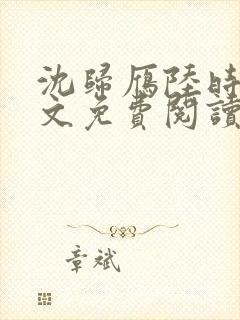 沈歸雁陸時
文免費閱讀
章斌